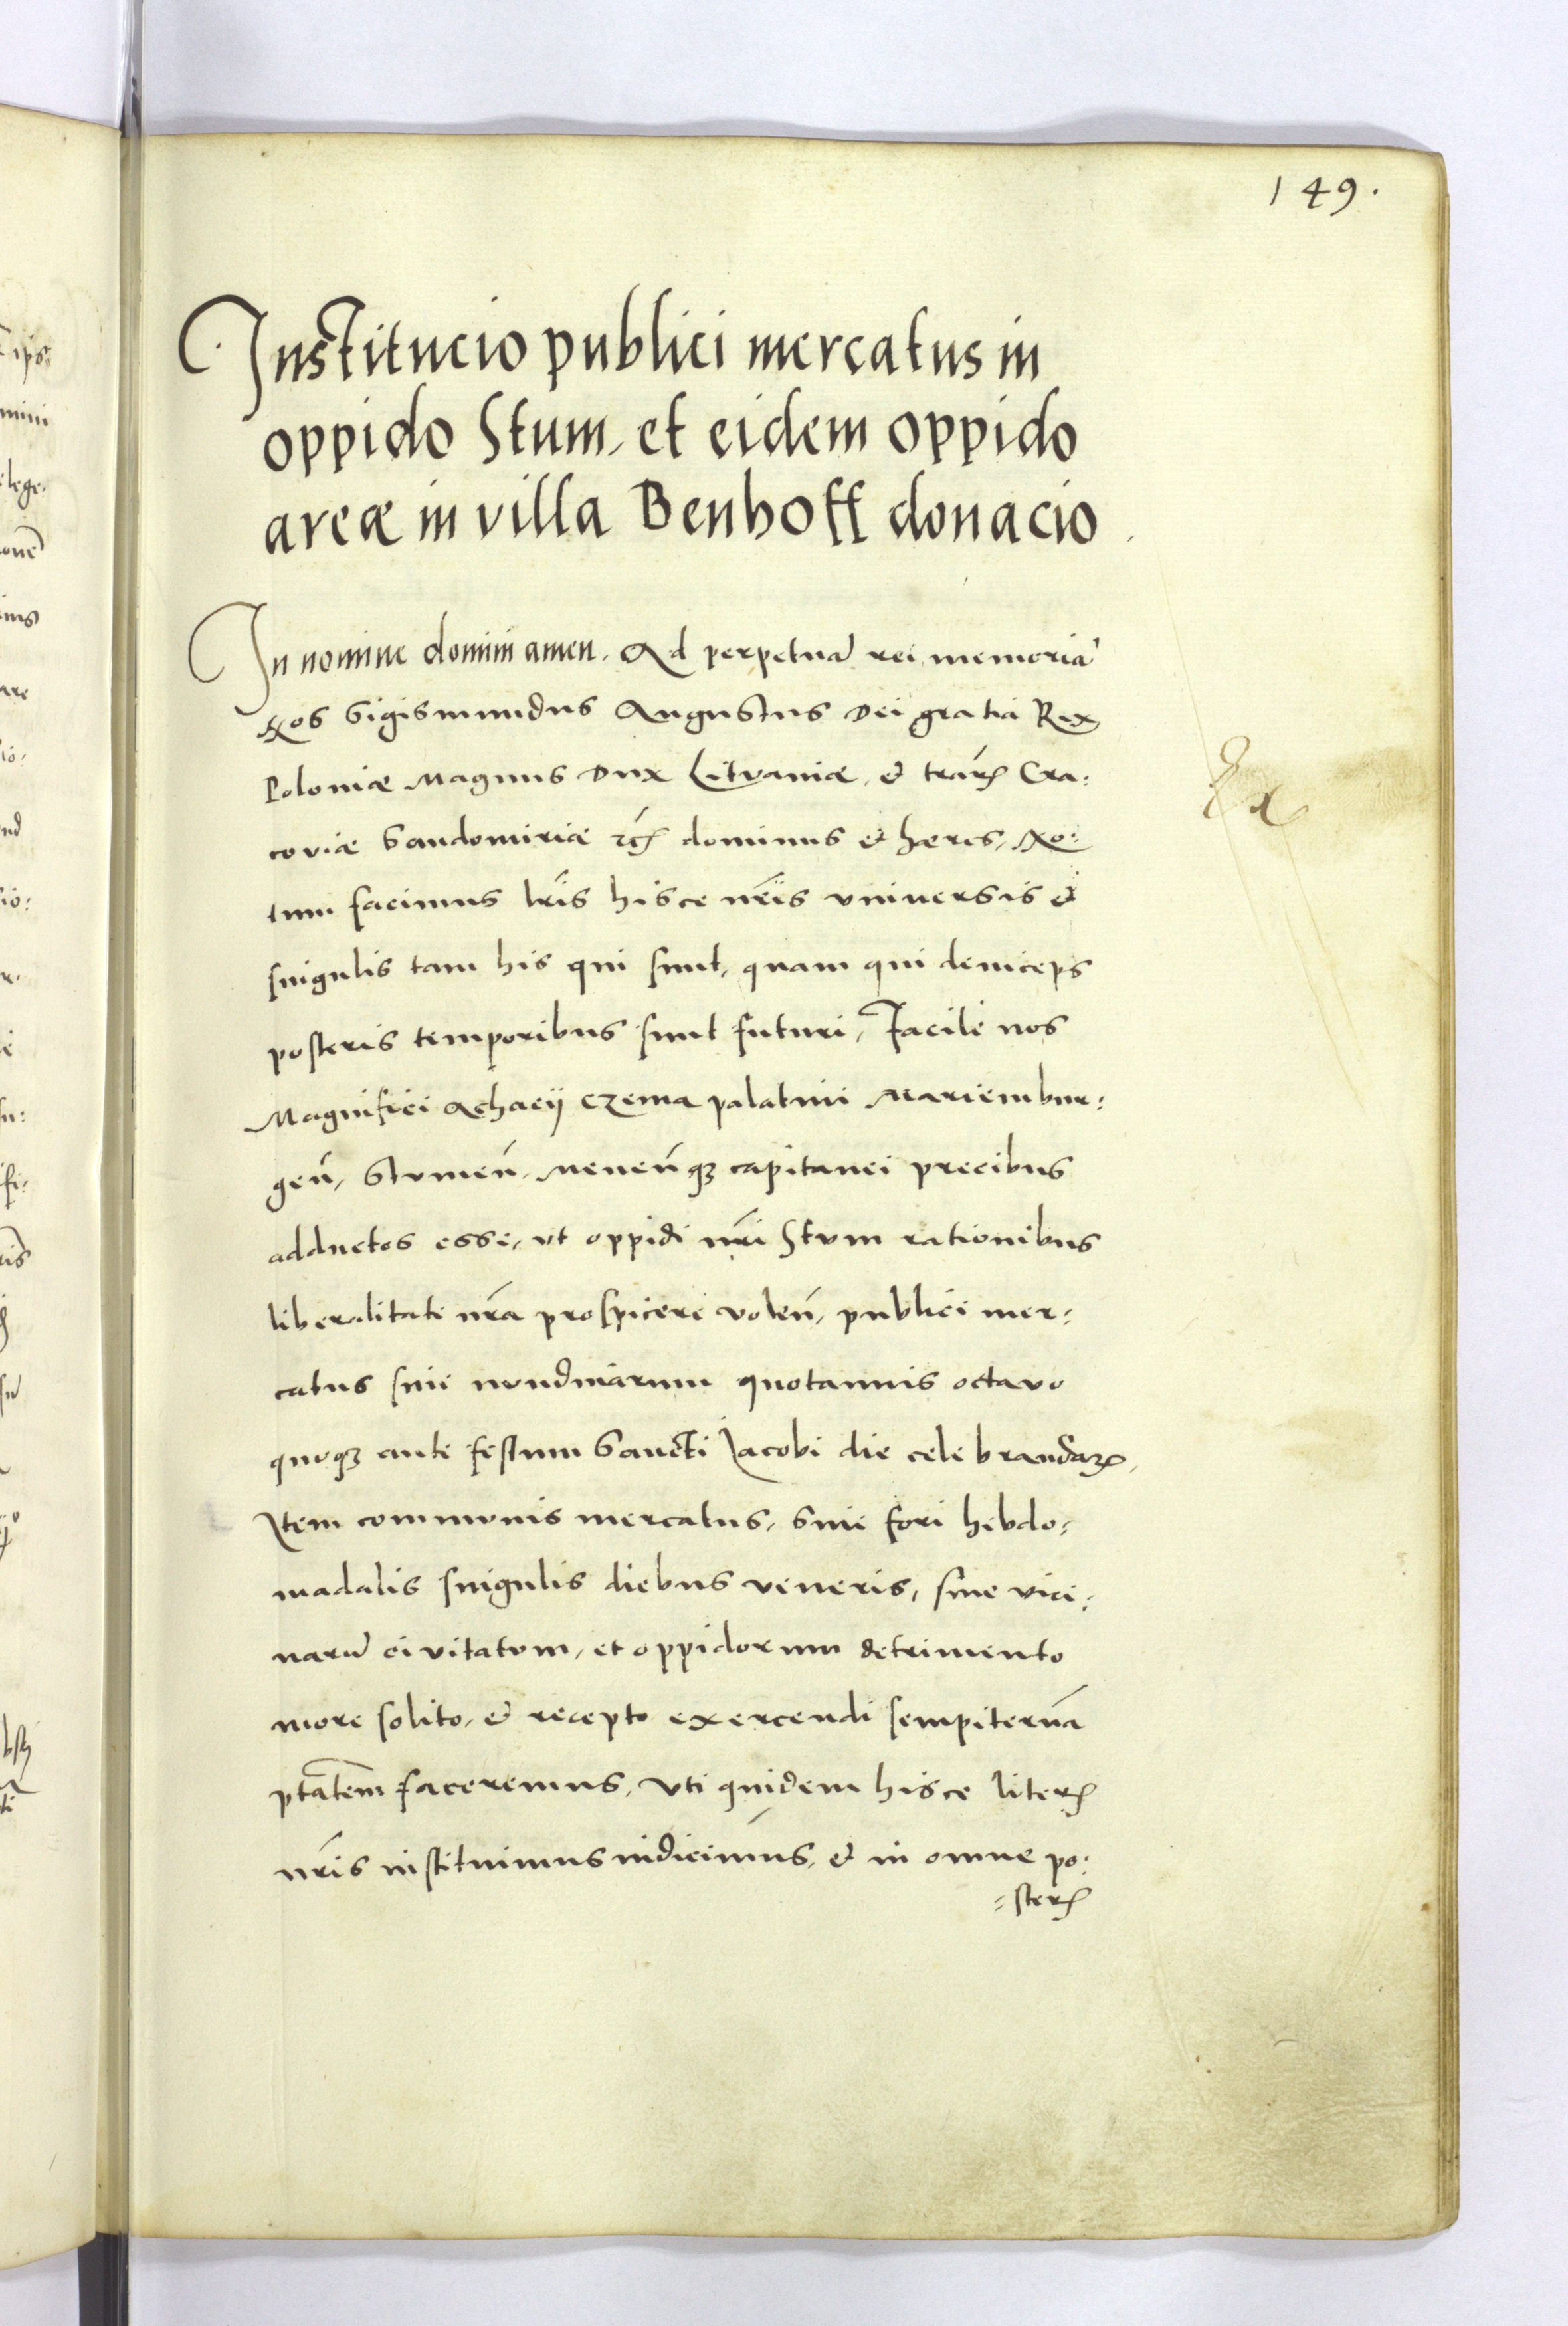 149.
Institucio publici mercatus in
oppido Stum, et eidem oppido
areæ in villa Benhoff donacio.
In nomine domini amen. Ad perpetuã rei memoriã
Nos Sigismundus Augustus Dei gratia Rex
Poloniæ Magnus Dux Lituaniæ, et trãrꝭ Cra:
coviæ Sandomiriæ ꝛcꝭ dominus et hæres, No:
tum facimus lr̃is hisce nr̃is vniversis et
singulis tam his qui sunt, quam qui deinceps
posteris temporibus sunt futuri, Facile nos
Magnifici Achacij Czema palatini Mariembur:
geñ, Stumeñ, Meueñqꝫ capitanei precibus
adductos esse, vt oppidi nr̃i Stvm rationibus
liberalitate nr̃a prospicere voleñ, publici mer:
catus siue nundinarum quotannis octavo
quoqꝫ ante festum Sancti Jacobi die celebrandaꝝ,
Item communis mercatus, siue fori hebdo:
madalis singulis diebus veneris, sine vici:
narũ civitatvm, et oppidorum detrimento
more solito, et recepto exercendi sempiternã
ptãtem faceremus, vti quidem hisce literꝭ
nr̃is instituimus indicimus, et in omne po:
=sterꝭ